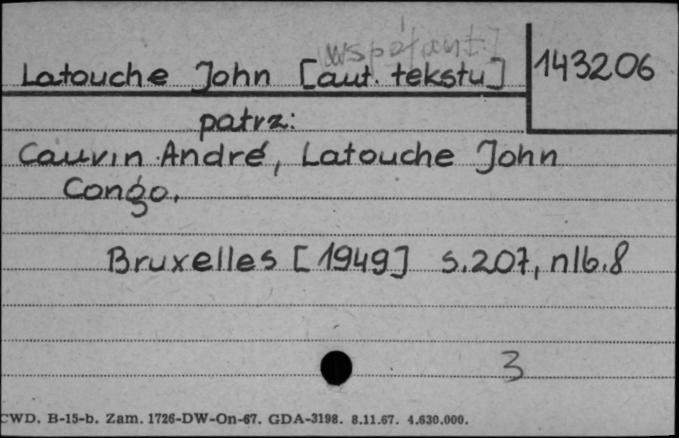 [współaut.]
Latouche John [aut. tekstu] 143206
patrz:
Cauvin André, Latouche John
Congo.
Bruxelles [1949] s.207, nlb.8
3
CWD. B-15-b. Zam. 1726-DW-On-67. GDA-3198. 8.11.67. 4.630.000.